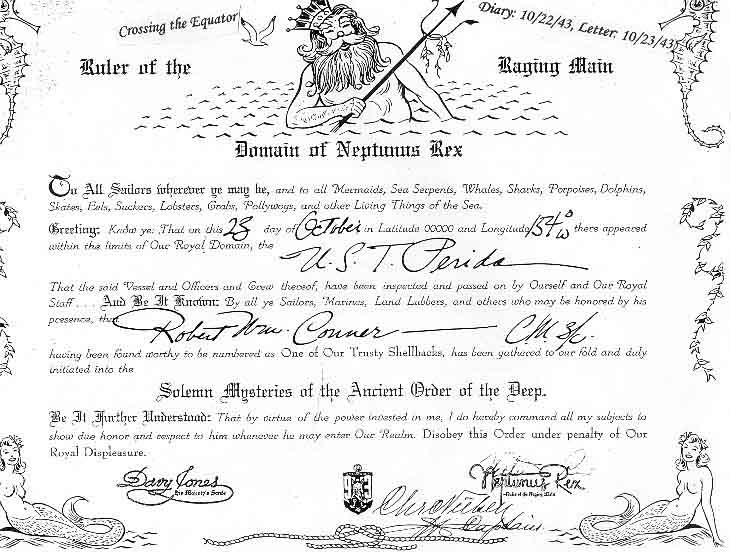 Crossing the Equator
Diary: 10/22/43, Letter: 10/23/43
Ruler of the Raging Main
Domain of Neptunus Rex
To All Sailors wherever ye may be, and to all Mermaids, Sea Serpents, Whales, Sharks, Porpoises, Dolphins,
Skates, Eels, Suckers, Lobsters, Crabs, Pollywogs, and other Living Things of the Sea.
Greeting: Know ye: That on this 23 day of October in Latitude 00000 and Longitude 154° W there appeared
within the limits of Our Royal Domain, the
U.S.T. Perida
That the said Vessel and Officers and Crew thereof, have been inspected and passed on by Ourself and Our Royal
Staff . . . And Be It Known: By all ye Sailors, Marines, Land Lubbers, and others who may be honored by his
presence, that
Robert Wm. Conner CM 3/c
having been found worthy to be numbered as One of Our Trusty Shellbacks, has been gathered to our fold and duly
initiated into the
Solemn Mysteries of the Ancient Order of the Deep.
Be It Further Understood: That by virtue of the power invested in me, I do hereby command all my subjects to
show due honor and respect to him whenever he may enter Our Realm. Disobey this Order under penalty of Our
Royal Displeasure.
Davy Jones
His Majesty's Scribe
Neptunus Rex
Ruler of the Raging Main
Captain